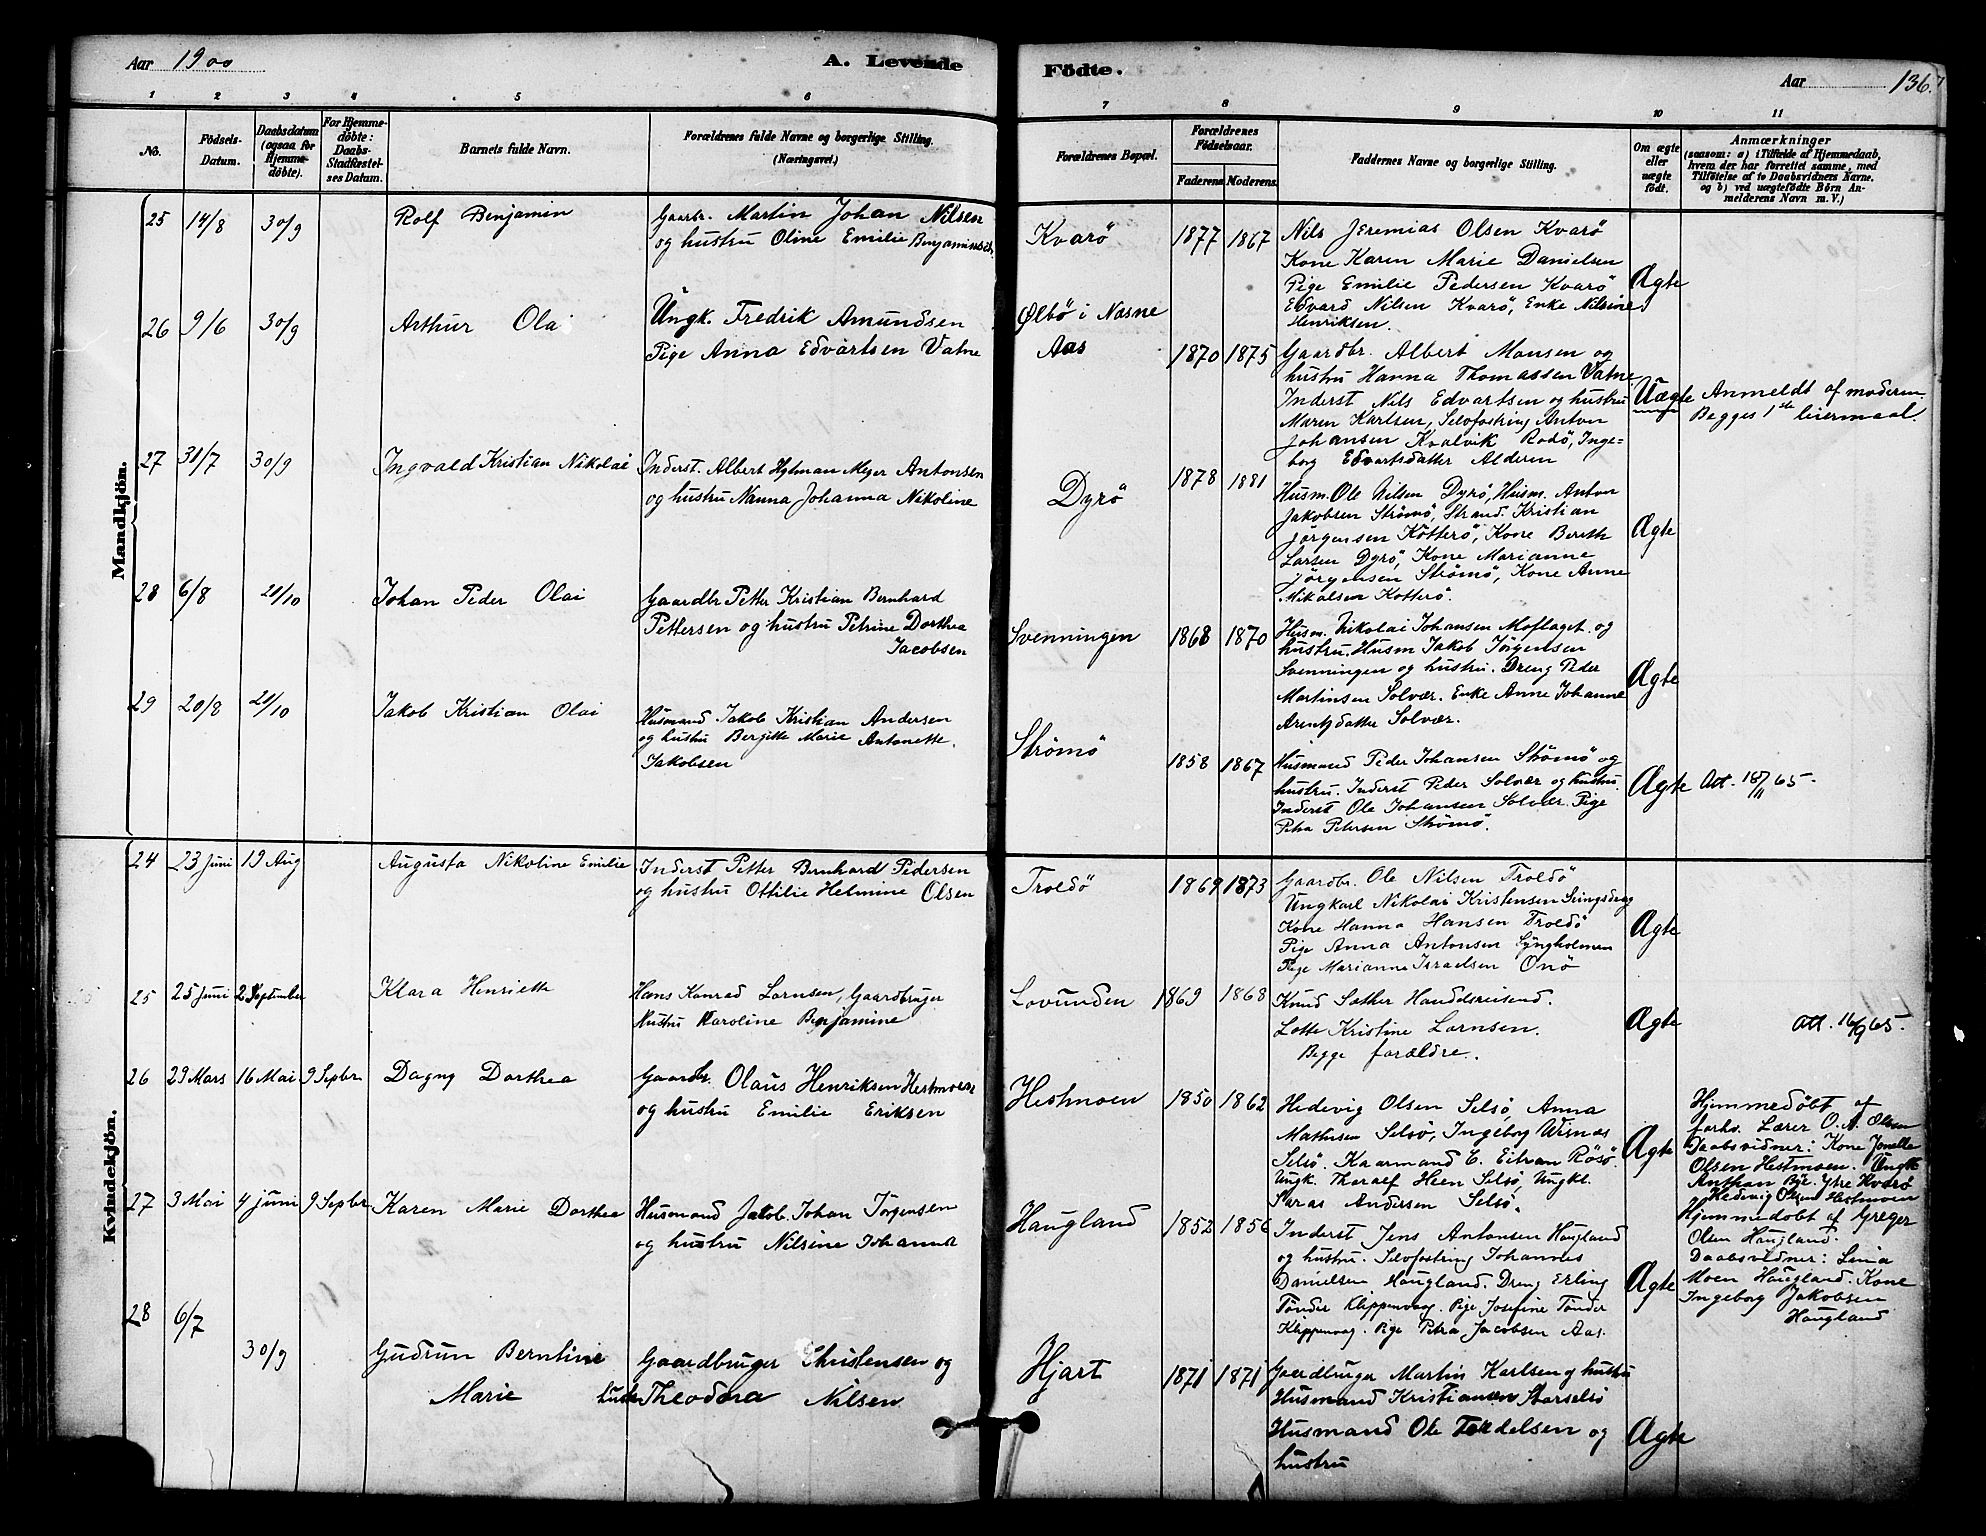 Aar 1900
A. Levende
Födte.
Aar 136.
1 2 3 4 5 6 7 8 9 10 11
No.
Födsels-
Datum.
Daabsdatum
(ogsaa for
Hjemme-
döbte).
For Hjemme-
döbte:
Daabs-
Stadfæstel-
ses Datum.
Barnets fulde Navn.
Forældrenes fulde Navne og borgerlige Stilling.
(Næringsvei.)
Forældrenes Bopæl.
Forældrenes
Födselsaar.
Faderens Moderens
Faddernes Navne og borgerlige Stilling.
Om ægte
eller
uægte
födt.
Anmærkninger
(saasom: a) i Tilfælde af Hjemmedaab,
hvem der har forrettet samme, med
Tilföielse af to Daabsvidners Navne.
og b) ved uægtefödte Börn An-
melderens Navn m. V.)
Mandkjön.
25 14/8 30/9 Rolf Benjamin
Gaarbr. Martin Johan Nilsen
og hustru Oline Emilie Benjaminsen
Kvarö 1877 1867
Nils Jeremias Olsen Kvarö
Kone Karen Marie Danielsen
Pige Emilie Pedersen Kvarö
Edvard Nilsen Kvarö, Enke Nilsine
Henriksen.
Ægte
26 9/6 30/9 Arthur Olai
Ungk. Fredrik Amundsen
Pige Anna Edvartsen Vatne
Ølbö i Næsne
Aas
1870 1875
Gaardbr. Albert Monsen og
hustru Hanna Thomassen Vatne
Inderst Nils Edvartsen og hustru
Maren Karlsen, Selvfostring Anton
Johansen Kvalvik Rodö, Inge=
borg Edvartsdatter Alderen
Uægte
Anmeldt af moderen.
Begges 1ste leiermaal.
27 31/7 30/9 Ingvald Kristian Nikolai
Inderst. Albert Hytman Meyer Antonsen
og hustru Nanna Johanna Nikoline
Dyrö 1878 1881
Husm. Ole Nilsen Dyrö, Husm. Anton
Jakobsen Strömö, Strand. Kristian
Jörgensen Kotterö, Kone Berethe
Larsen Dyrö, Kone Marianne
Jörgensen Strömö, Kone Anne
Mikalsen Kotterö.
Ægte
28 6/8 21/10 Johan Peder Olai
Gaardbr Petter Kristian Bernhard
Pettersen og hustru Petrine Dorthea
Jacobsen
Svenningen 1868 1870
Husm. Nikolai Johansen Moflaget og
hustru. Husm Jakob Jörgensen
Svenningen og hustru. Dreng Peder
Martinsen Solvær. Enke Anne Johanne
Arentsdatter Solvær.
Ægte
29 20/8 21/10 Jakob Kristian Olai
Husmand Jakob Kristian Andersen
og hustru Bergitte Marie Antonette
Jakobsen
Strömö 1858 1867
Husmand Peder Johansen Strömö og
hustru. Inderst Peder Solvær og hustru
Inderst Ole Johansen Solvær. Pige
Petra Petersen Strömö.
Ægte
Att. 18/11 65-
Kvindekjön.
24 23 Juni 19 Aug Augusta Nikoline Emilie
Inderst Petter Bernhard Pedersen
og hustru Ottilie Helmine Olsen
Troldö 1869 1873
Gaardbr. Ole Nilsen Troldö
Ungkarl Nikolai Kristensen
Kone Hanna Hansen Troldö
Pige Anna Antonsen Lyngholmen
Pige Marianne Israelsen Onö
Ægte
25 25 Juni 2 September Klara Henriette
Hans Konrad Lornsen, Gaardbruger
Hustru Karoline Benjamine
Lovunden 1869 1868
Knud Sæther Handelsreisend.
Lotte Kristine Lornsen.
Begge forældre.
Ægte
Att. 16/9 65.
26 29 Mars 16 Mai 9 Septbr Dagny Dorthea
Gaardbr. Olaus Henriksen Hestmoen
og hustru Emilie Eriksen
Hestmoen 1850 1862
Hedevig Olsen Selsö, Anna
Mathisen Selsö, Ingeborg Wisnæs
Selsö. Kaarmand E. Eitran Rösö.
Ungk. Thoralf Heen Selsö, Ungkl.
Paras Andersen Selsö.
Ægte
Hjemmedöbt af
forhv. Lærer O. A. Olsen
Daabsvidner: Kone Jonella
Olsen Hestmoen. Ungk
Anthon Bje. Ytre Kvarö
Hedevig Olsen Hestmoen
27 3 Mai 4 juni 9 Septbr Karen Marie Dorthea
Husmand Jakob Johan Jörgensen
og hustru Nilsine Johanna
Haugland 1852 1856
Inderst Jens Antonsen Haugland
og hustru. Selvfostring Johannes
Danielsen Haugland. Dreng Erling
Tönder Klippenvaag. Pige Josefine Tönder
Klippenvag. Pige Petra Jacobsen Aas.
Ægte
Hjemmedöbt af Greger
Olsen Haugland.
Daabsvidner: Lina
Moen Haugland. Kone
Ingeborg Jakobsen
Haugland
28 6/7 30/9 Gudrun Berntine
Marie
Gaardbruger Christensen og
hustru Theodora Nilsen
Hjart 1871 1871
Gaardbruger Martin Karlsen og hustru
Husmand Kristiansen Storselsö
Husmand Ole Tordelsen og
hustru
Ægte